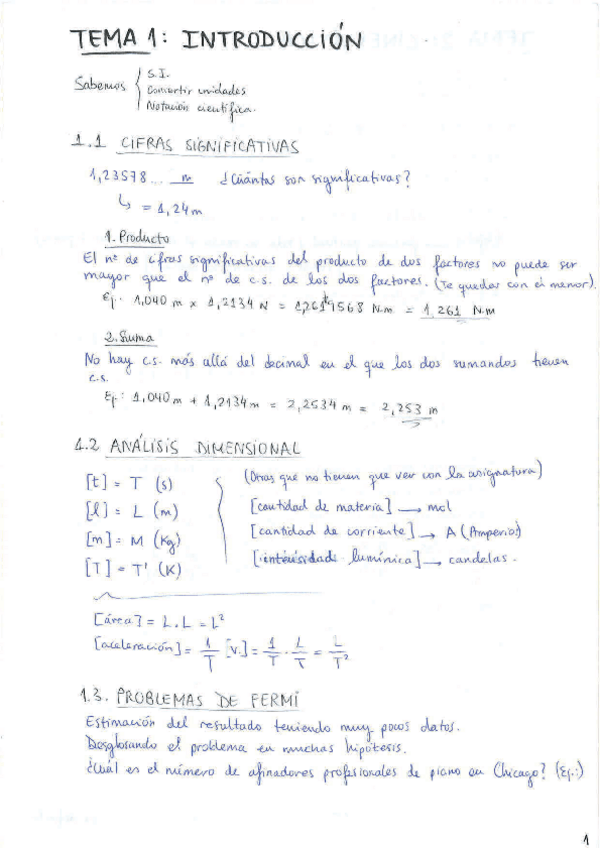 TEMA 1: INTRODUCCIÓN
Sabemos { S.I.
Convertir unidades
Notación científica.
1.1 CIFRAS SIGNIFICATIVAS
1,23578... m ¿Cuántas son significativas?
↳ = 1,24 m
1. Producto
El nº de cifras significativas del producto de dos factores no puede ser
mayor que el nº de c.s. de los dos factores. (Te quedas con el menor).
Ej.: 1,040 m x 1,2134 N = 1,2619568 N.m = 1,261 N.m
2. Suma
No hay c.s. más allá del decimal en el que los dos sumandos tienen
c.s.
Ej.: 1,040 m + 1,2134 m = 2,2534 m = 2,253 m
1.2 ANÁLISIS DIMENSIONAL
[t] = T (s)
[l] = L (m)
[m] = M (Kg)
[T] = T' (K)
(Otras que no tienen que ver con la asignatura)
[cantidad de materia] → mol
[cantidad de corriente] → A (Amperio)
[intensidad lumínica] → candelas.
[área] = L . L = L²
[aceleración] = 1/T [v.] = 1/T · L/T = L/T²
1.3. PROBLEMAS DE FERMI
Estimación del resultado teniendo muy pocos datos.
Desglosando el problema en muchas hipótesis.
¿Cuál es el número de afinadores profesionales de piano en Chicago? (Ej.:)
1